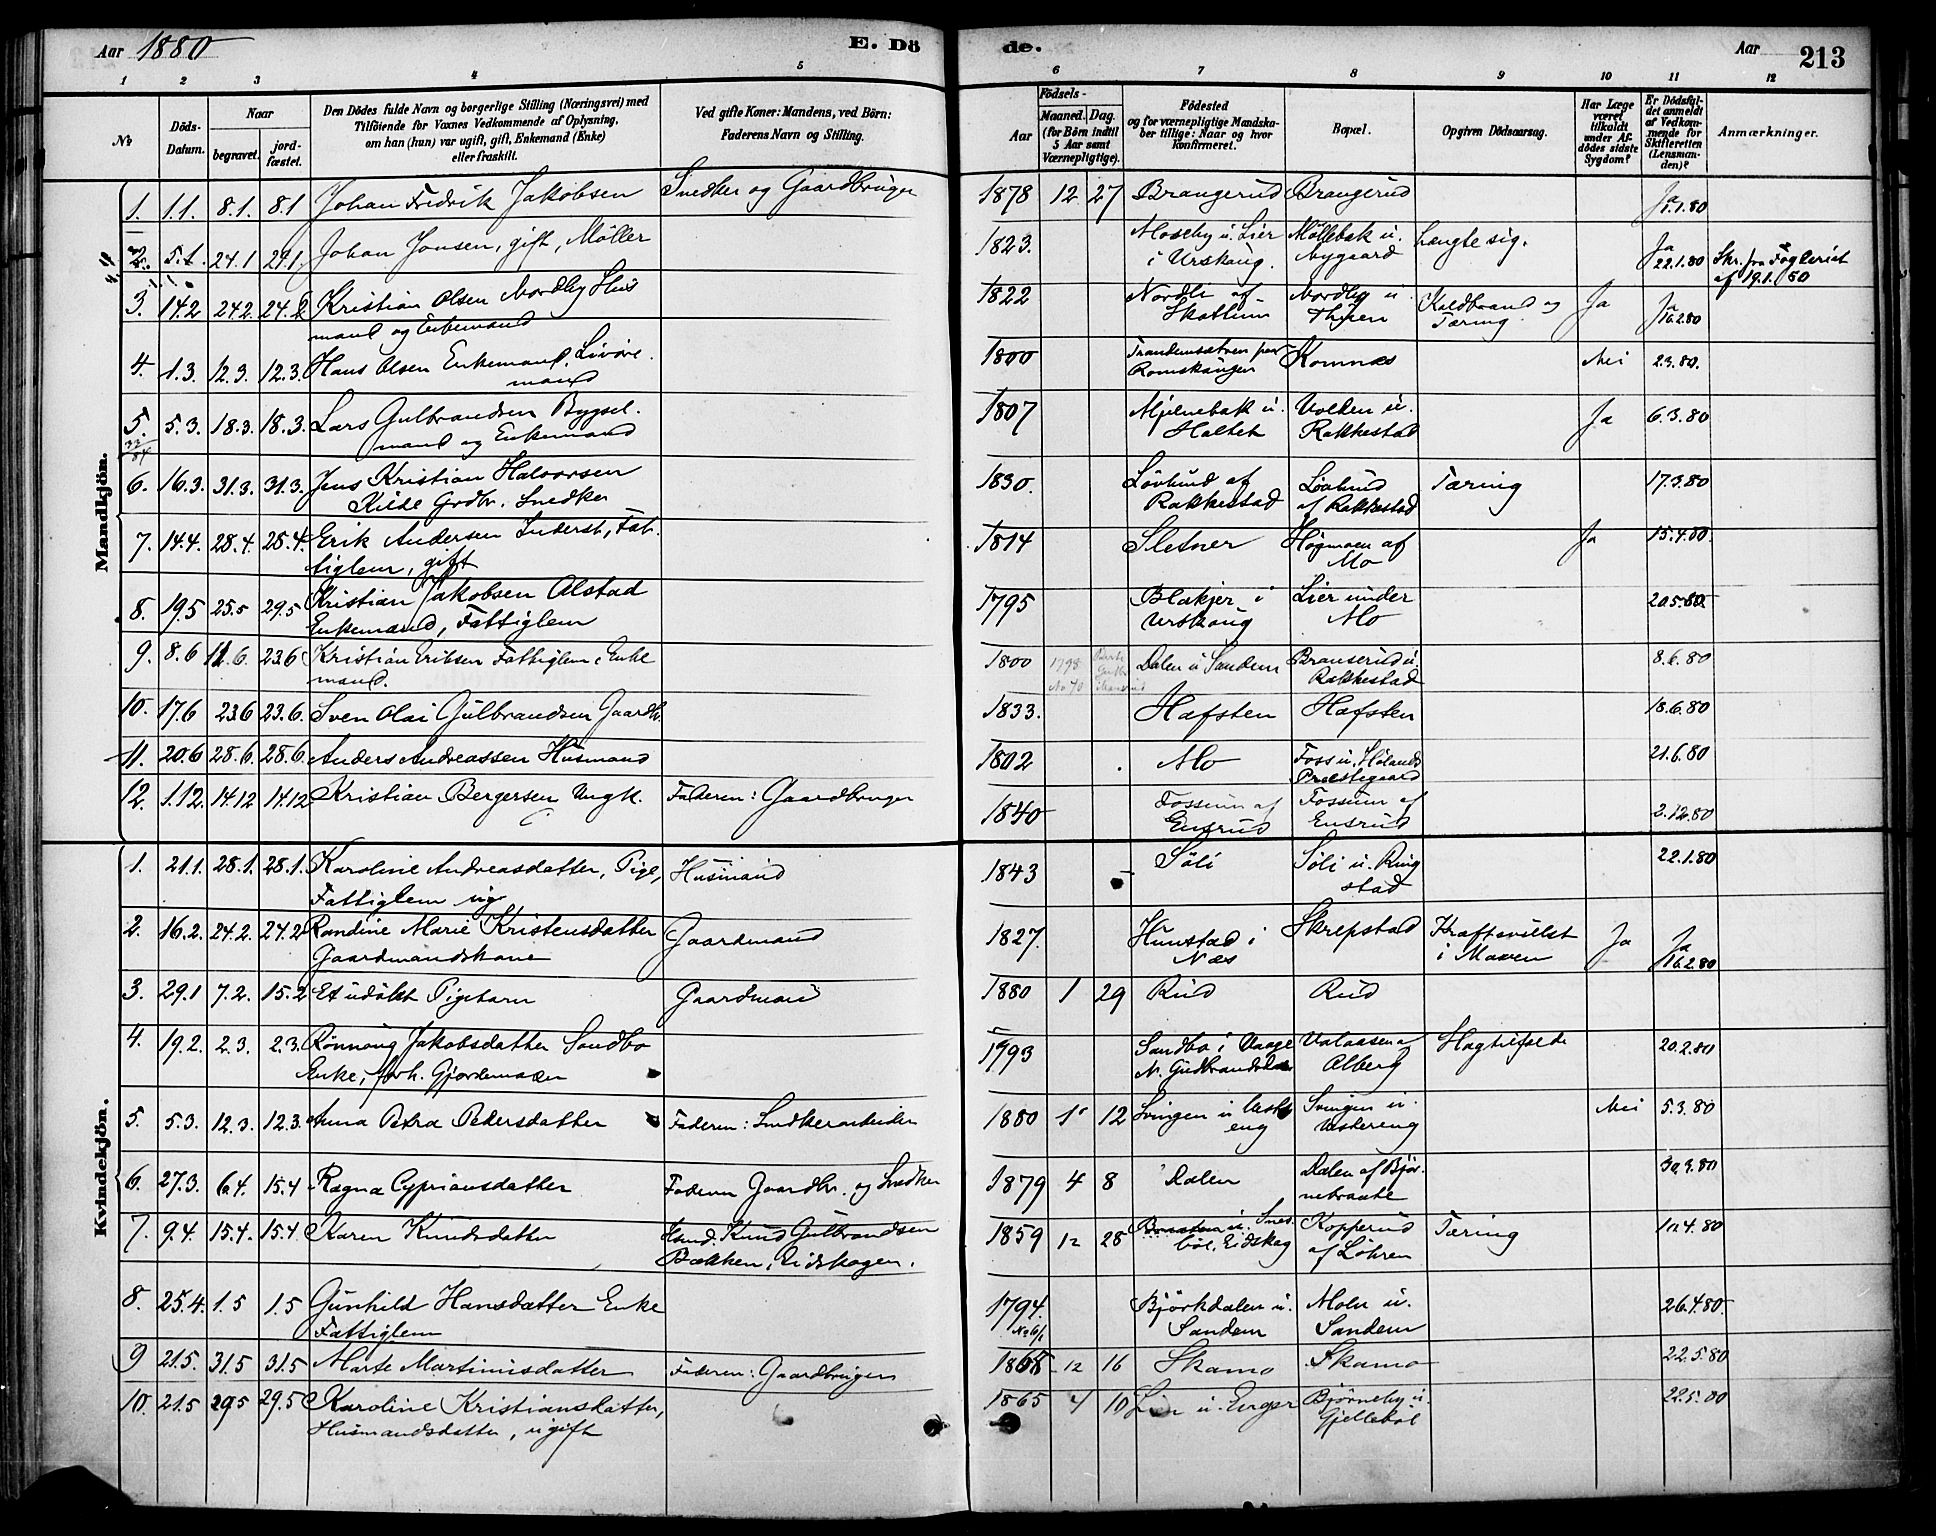 Aar 1880 E. Dö
de. Aar 213
1 2 3 4 5 6 7 8 9 10 11 12
№
Döds-Datum.
Naar
begravet.
jord-fæstet.
Den Dödes fulde Navn og borgerlige Stilling (Næringsvei) med
Tilföiende for Voxnes Vedkommende af Oplysning,
om han (hun) var ugift, gift, Enkemand (Enke)
eller fraskilt.
Ved gifte Koner: Mandens, ved Börn:
Faderens Navn og Stilling.
Födsels-
Aar
Maaned. Dag.
(for Börn indtil
5 Aar samt
Værnepligtige).
Födested
og for værnepligtige Mandska-
ber tillige: Naar og hvor
konfirmeret.
Bopæl.
Opgiven Dödsaarsag.
Har Læge
været
tilkaldt
under Af-
dödes sidste
Sygdom?
Er Dödsfal-
det anmeldt
af Vedkom-
mende for
Skifteretten
(Lensman-
den)?
Anmærkninger.
Mandkjön.
1. 1.1. 8.1. 8.1 Johan Fredrik Jakobsen Snedker og Gaardbruger 1878 12 27 Brangerud Brangerud Ja 1.1.80
2. 5.1. 24.1 24.1 Johan Jonsen, gift, Möller 1823. Moseby u. Lier i Urskoug. Möllebak u. Nygaard hængte sig. Ja 22.1.80 Skr. fra Fogderiet af 19.1.80
3. 14.2 24.2. 24.2 Kristian Olsen Nordby Hus
mand og Enkemand 1822 Nordli af Skatlum Nordby u Thyren Koldbrand og Tæring. Ja Ja 16.2.80
4. 1.3. 12.3. 12.3. Hans Olsen Enkemand. Livöre
mand 1800 Romskougen Komnæs Nei 2.3.80.
5. 5.3. 18.3. 18.3. Lars Gulbrandsen Bygsel.
mand og Enkemand 1807 Mjelnebak u. Haltet Volden u. Rakkestad Ja 6.3.80
6. 16.3. 31.3. 31.3. Jens Kristian Halvorsen
Kilde Grdbr. Snedker 1830. Lövlund af Rakkestad Lövlund af Rakkestad Tæring 17.3.80
7. 14.4. 28.4. 28.4. Erik Andersen Inderst, Fat
tiglem, gift 1814 Sletner Högmoen af Mo Ja 15.4.80.
8. 19.5 25.5 29.5 Kristian Jakobsen Olstad
Enkemand, Fattiglem 1795 Blakjer i Urskoug Lier under Mo 20.5.80.
9. 8.6 11.6. 23.6 Kristian Eriksen Fattiglem, Enke
mand. 1800 1798 No 70 Dalen u Sandem Branserud u. Rakkestad 8.6.80
10. 17.6 23.6 23.6. Sven Olai Gulbrandsen Gaardb. 1833. Hafsten Hafsten 18.6.80
11. 20.6 28.6. 28.6. Anders Andreassen Husmand 1802 Mo Foss u. Hölands Præstegaard 21.6.80
12. 1.12. 14.12 14.12 Kristian Bergersen Ungk. Faderen: Gaardbruger 1840 Fossum af Ensrud Fossum af Ensrud 2.12.80
Kvindekjön.
1. 21.1. 28.1. 28.1. Karoline Andreasdatter, Pige,
Fattiglem ug Husmand 1843 Söli Söli u. Ringstad 22.1.80
2. 16.2. 24.2. 24.2 Randine Marie Kristensdatter
Gaardmandskone Gaardmand 1827. Hunstad i Næs Skrepstad Kræftsvulst i Maven Ja Ja 16.2.80
3. 29.1 7.2. 15.2 Et udöbt Pigebarn Gaardmand 1880 1 29 Rud Rud
4. 19.2. 2.3. 2.3. Rönnoug Jakobsdatter Sandbo
Enke, forh. Gjordemoder 1793 Sandbo i Vaage N. Gudbrandsdalen Valaasen af Alberg 20.2.80
5. 5.3. 12.3. 12.3. Anna Petra Pedersdatter Faderen: Snedkerarbeider 1880 1 12 Svingen u Vestereng Svingen u. Vestereng Nei 5.3.80
6. 27.3. 6.4. 15.4 Ragna Cypriansdatter Faderen Gaardbr. og Snedker 1879 4 8 Dalen Dalen af Björnebraate 30.3.80
7. 9.4. 15.4. 15.4. Karen Knudsdatter Husmd. Knud Gulbrandsen
Bækken, Eidskogen. 1859 12 28 Eidskog Kopperud af Löhren Tæring 10.4.80
8. 25.4. 1.5 1.5 Gunhild Hansdatter Enke
Fattiglem 1794. No 61 Björkdalen u. Sandem Moln u. Sandem 26.4.80.
9 21.5. 31.5 31.5 Marte Martinusdatter Faderen: Gaardbruger 1868 12 16 Skamo Skamo 22.5.80
10. 21.5 29.5 29.5 Karoline Kristiansdatter,
Husmandsdatter, ugift 1865 4 10 Lien u. Enger Björneby u. Gjellebøl 22.5.80